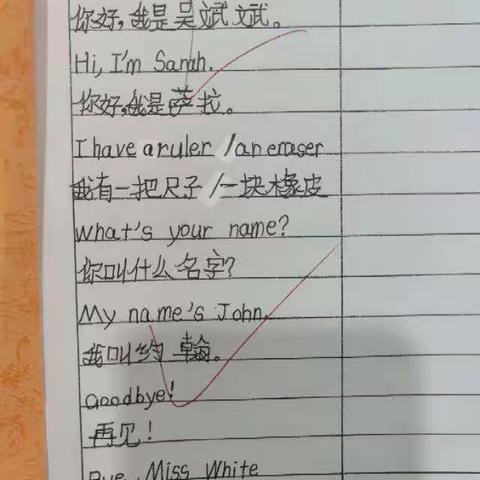 你好,我是吴斌斌。
Hi, I'm Sarah.
你好,我是萨拉。
I have a ruler /an eraser
我有一把尺子/一块橡皮
What's your name?
你叫什么名字?
My name's John.
我叫约翰。
Goodbye!
再见!
Bye, Miss White